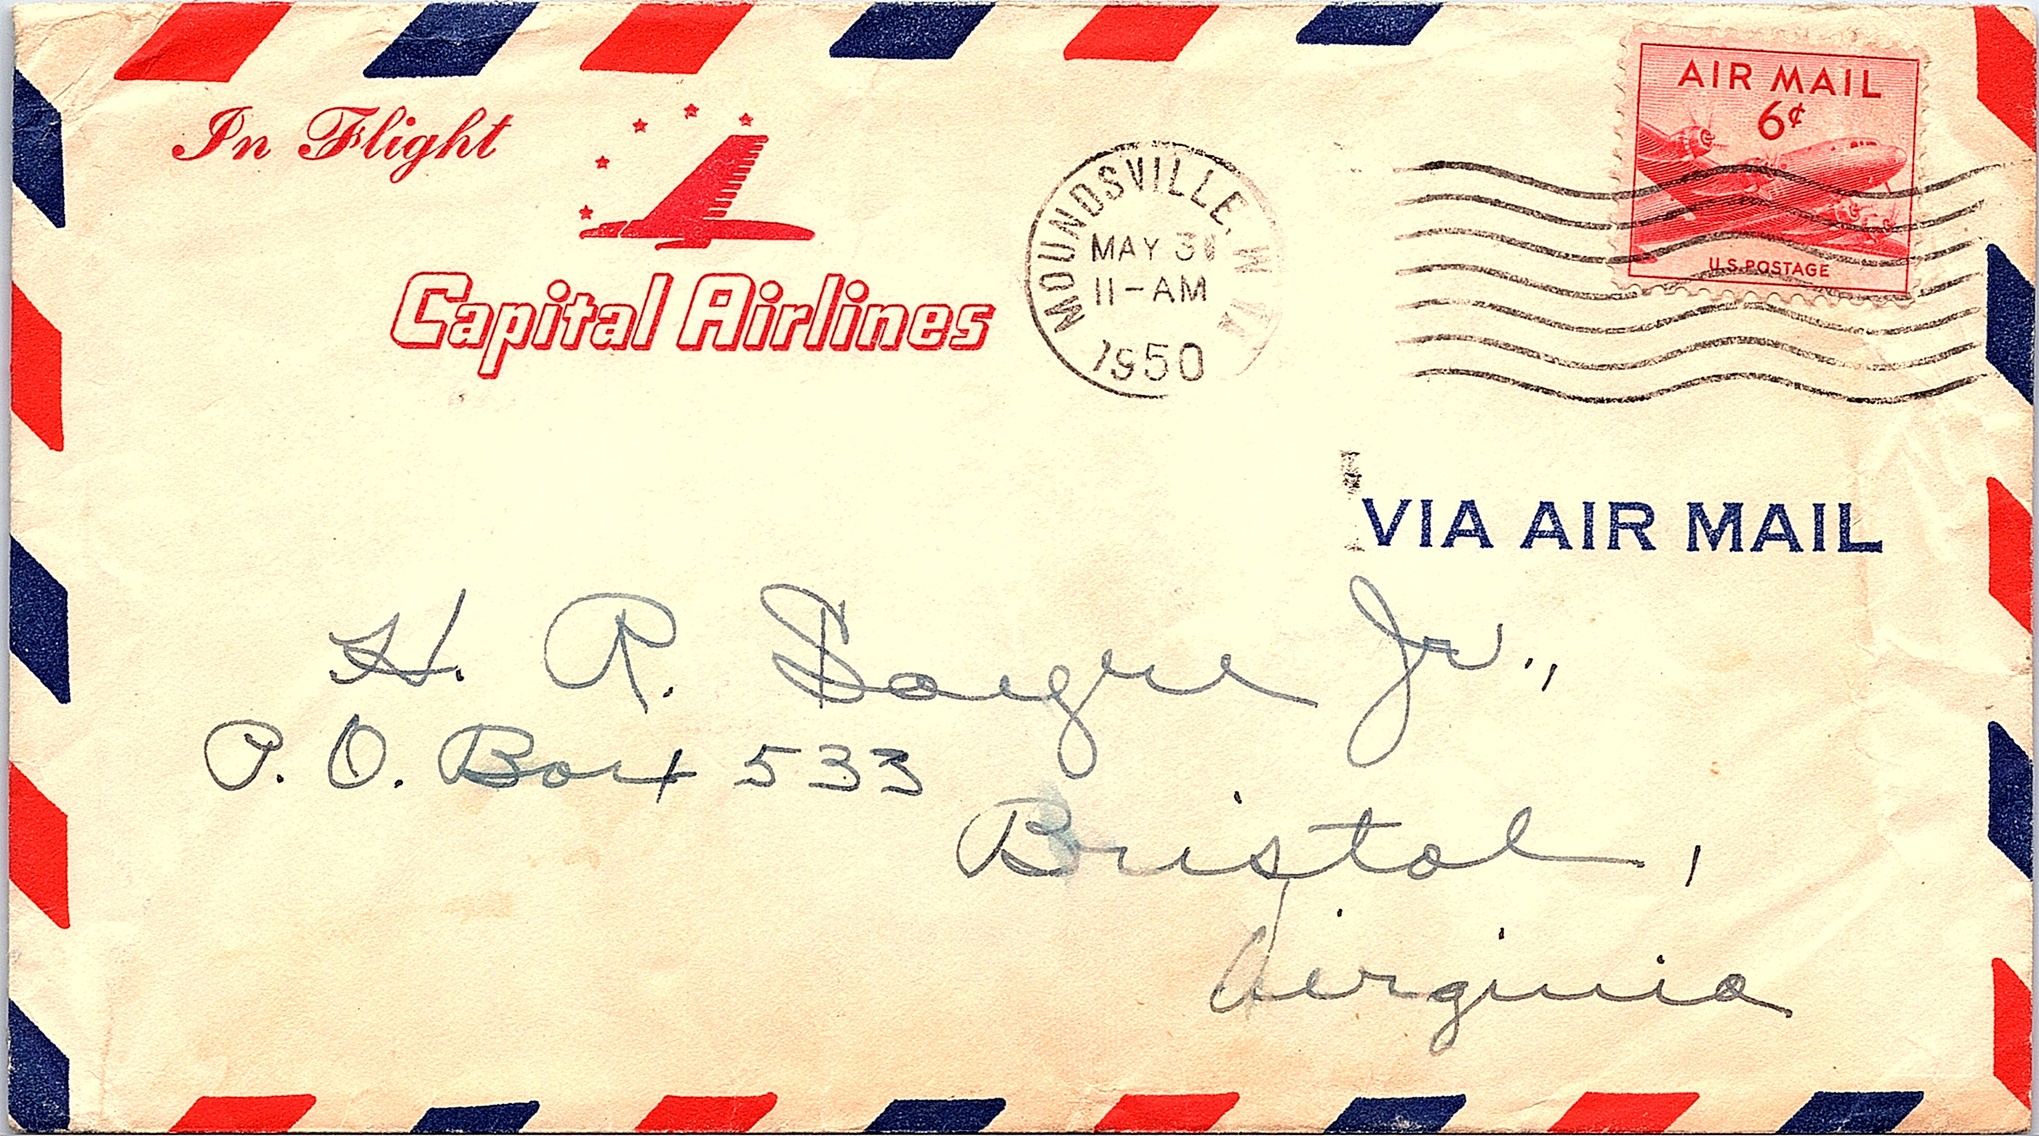 In Flight
Capital Airlines
MOUNDSVILLE, W. VA.
MAY 31
11-AM
1950
AIR MAIL
6¢
U.S. POSTAGE
VIA AIR MAIL
H. R. Jr.,
P. O. Box 533
Bristol,
Virginia